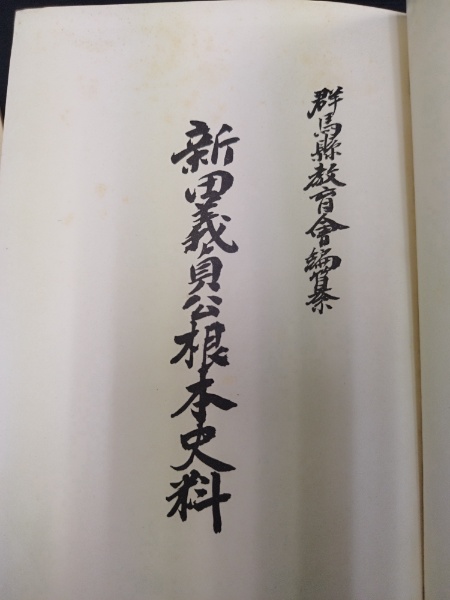 群馬縣教育會編纂
新田義貞公根本史料